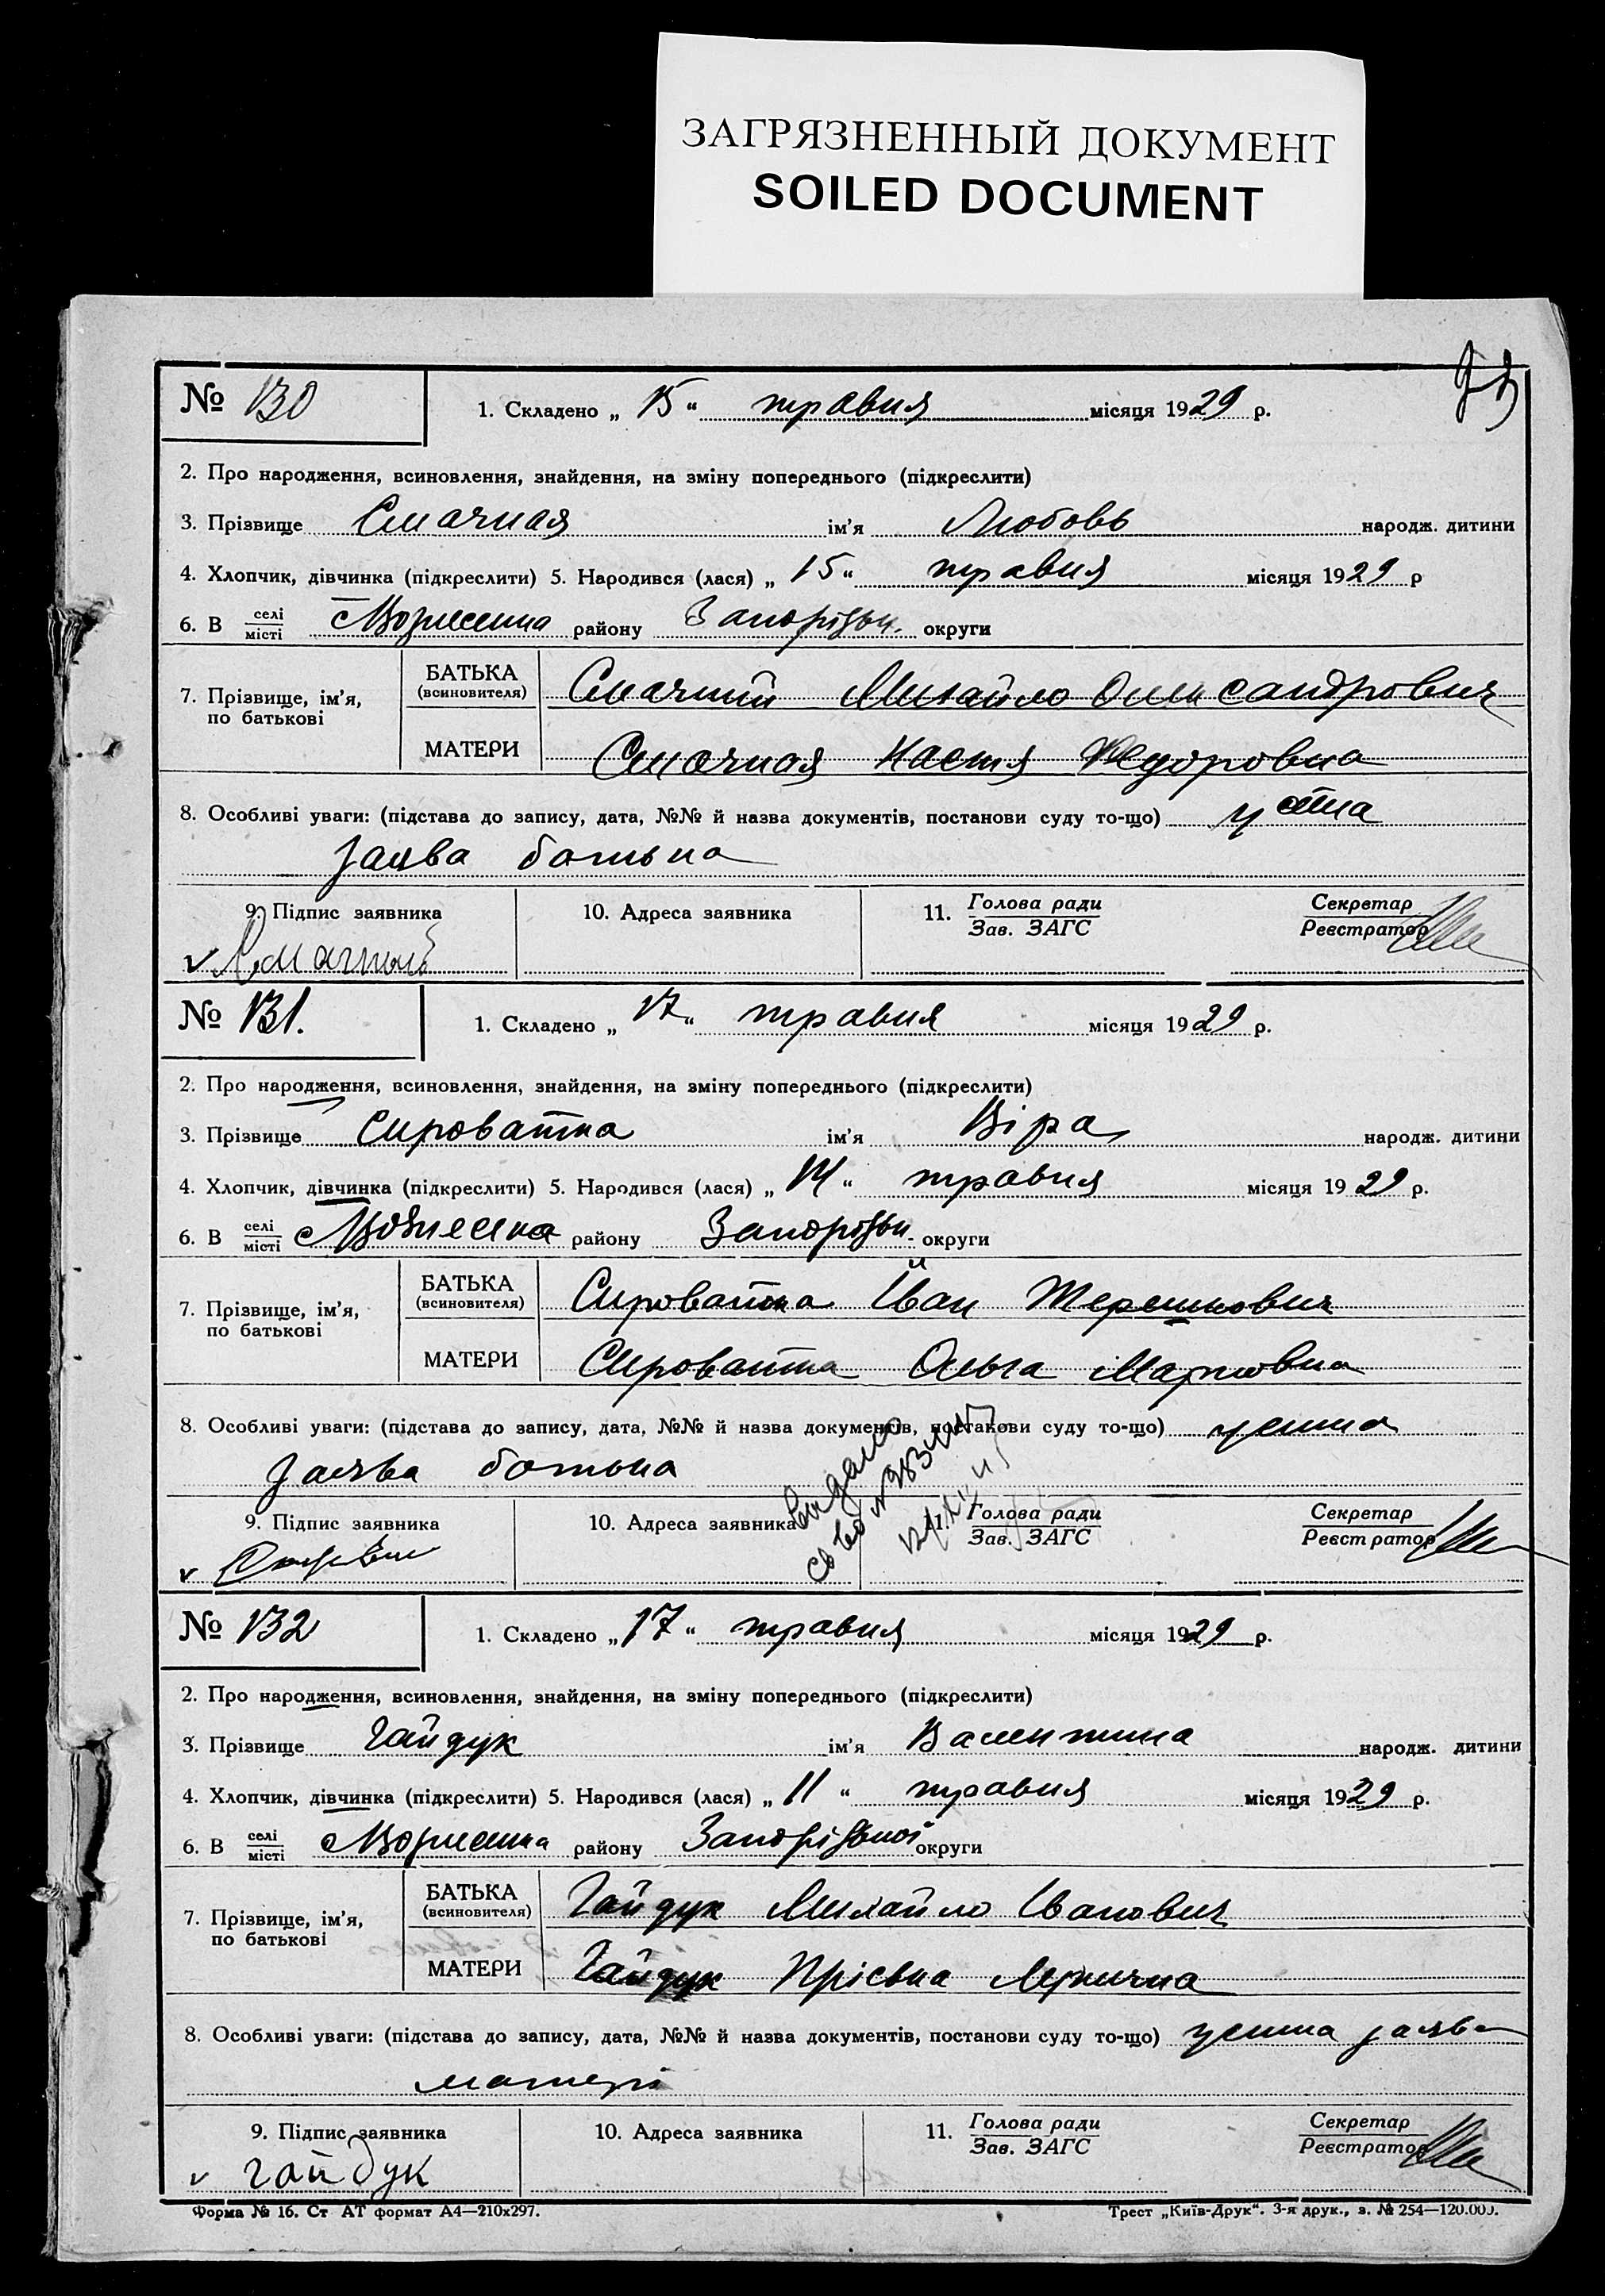 ЗАГРЯЗНЕННЫЙ ДОКУМЕНТ
SOILED DOCUMENT
№ 130
1. Складено „ 15 “ травня місяця 1929 р.
2. Про народження, всиновлення, знайдення, на зміну попереднього (підкреслити)
3. Прізвище Смачная ім’я Любовь народж. дитини
4. Хлопчик, дівчинка (підкреслити) 5. Народився (лася) „ 15 “ травня місяця 1929 р
6. В селі/місті Вознесенка району Запорізьк. округи
7. Прізвище, ім’я, по батькові
БАТЬКА (всиновителя) Смачний Михайло Олександрович
МАТЕРИ Смачная Настя Федоровна
8. Особливі уваги: (підстава до запису, дата, №№ й назва документів, постанови суду то-що) устна
заява батька
9. Підпис заявника 10. Адреса заявника 11. Голова ради/Зав. ЗАГС Секретар/Реєстратор
v Смачный
№ 131.
1. Складено „ 17 “ травня місяця 1929 р.
2. Про народження, всиновлення, знайдення, на зміну попереднього (підкреслити)
3. Прізвище Сироватка ім’я Віра народж. дитини
4. Хлопчик, дівчинка (підкреслити) 5. Народився (лася) „ 14 “ травня місяця 1929 р.
6. В селі/місті Вознесенка району Запорізьк. округи
7. Прізвище, ім’я, по батькові
БАТЬКА (всиновителя) Сироватка Іван Терешкович
МАТЕРИ Сироватка Ольга Марковна
8. Особливі уваги: (підстава до запису, дата, №№ й назва документів, постанови суду то-що) устна
заява батька
Выдано
св во №
9. Підпис заявника 10. Адреса заявника 11. Голова ради/Зав. ЗАГС Секретар/Реєстратор
v
№ 132
1. Складено „ 17 “ травня місяця 1929 р.
2. Про народження, всиновлення, знайдення, на зміну попереднього (підкреслити)
3. Прізвище Гайдук ім’я Валентина народж. дитини
4. Хлопчик, дівчинка (підкреслити) 5. Народився (лася) „ 11 “ травня місяця 1929 р.
6. В селі/місті Вознесенка району Запорізької округи
7. Прізвище, ім’я, по батькові
БАТЬКА (всиновителя) Гайдук Михайло Іванович
МАТЕРИ Гайдук
8. Особливі уваги: (підстава до запису, дата, №№ й назва документів, постанови суду то-що) устна заява
матері
9. Підпис заявника 10. Адреса заявника 11. Голова ради/Зав. ЗАГС Секретар/Реєстратор
v гайдук
Форма № 16. Ст АТ формат А4—210х297.
Трест „Київ-Друк“. 3-я друк., з. № 254—120.000.